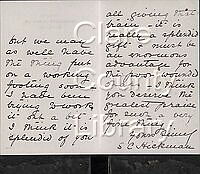 but we may
as well have
the thing put
on a working
footing soon
I have been
trying to work
it out a bit
I think it is
splendid of you
all giving this
train – it is
really a splendid
gift & must be
an enormous
advantage for
the poor wounded
I think
you deserve the
greatest praise
for such a very
Yours sincerely
S C Hickman